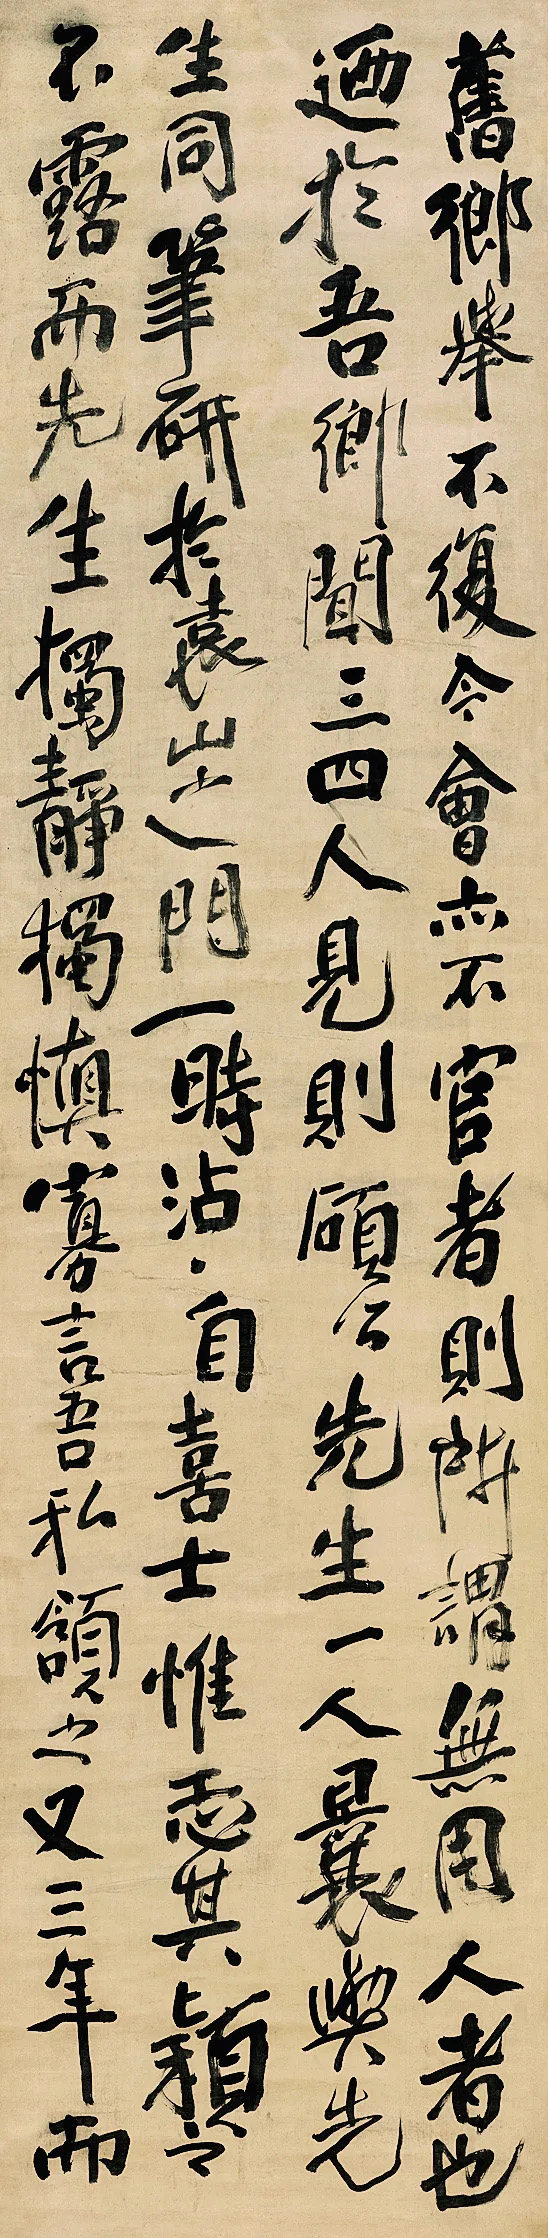 舊鄉舉不復令會亦不官者則所謂無用人者也
迺於吾鄉聞三四人見則碩公先生一人曩與先
生同筆研於袁山之門一時沾〻自喜士惟恐其穎之
不露而先生獨靜獨慎寡言吾私頷之又三年而